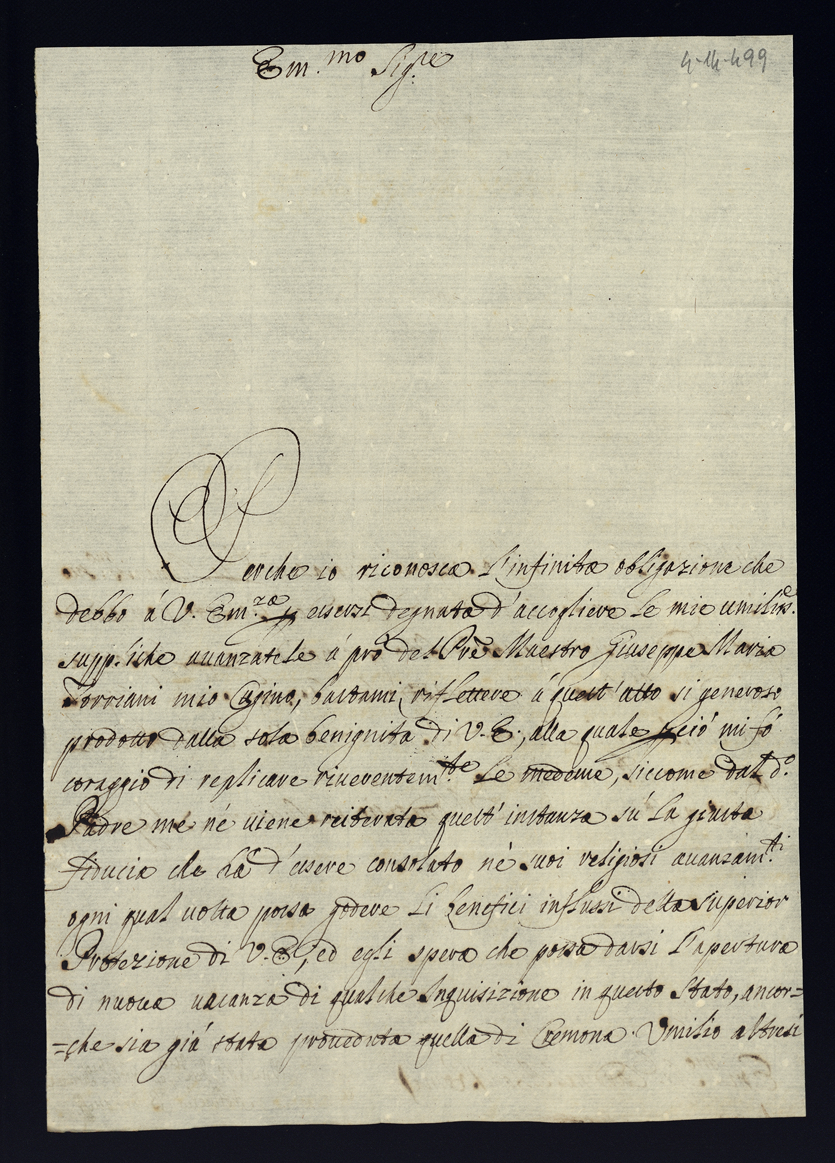 Em.mo Sig.re
4-14-499
Perche io riconosca l'infinita obligazione che
debbo á V. Em.za p esersi degnata d'accogliere le mie umilis.e
supp.liche auanzatele á prò del Pre Maestro Giuseppe Maria
Torriani mio Cugino, bastami riflettere á quest'atto si generoso
prodotto dalla sola benignita di V. E., alla quale p ció mi fó
coraggio di replicare riuerentem.te le medeme, siccome dal d.o
Padre me né uiene reiterata quest'instanza sú la giusta
fiducia che há d'essere consolato né suoi religiosi auanzam.ti
ogni qual uolta possa godere li benefici influssi della superior
Protezione di V. E., ed egli spera che possa darsi l'apertura
di nuoua uacanza di qualche Inquisizione in questo Stato, ancor=
=che sia giá stata proueduta quella di Cremona Umilio altresi